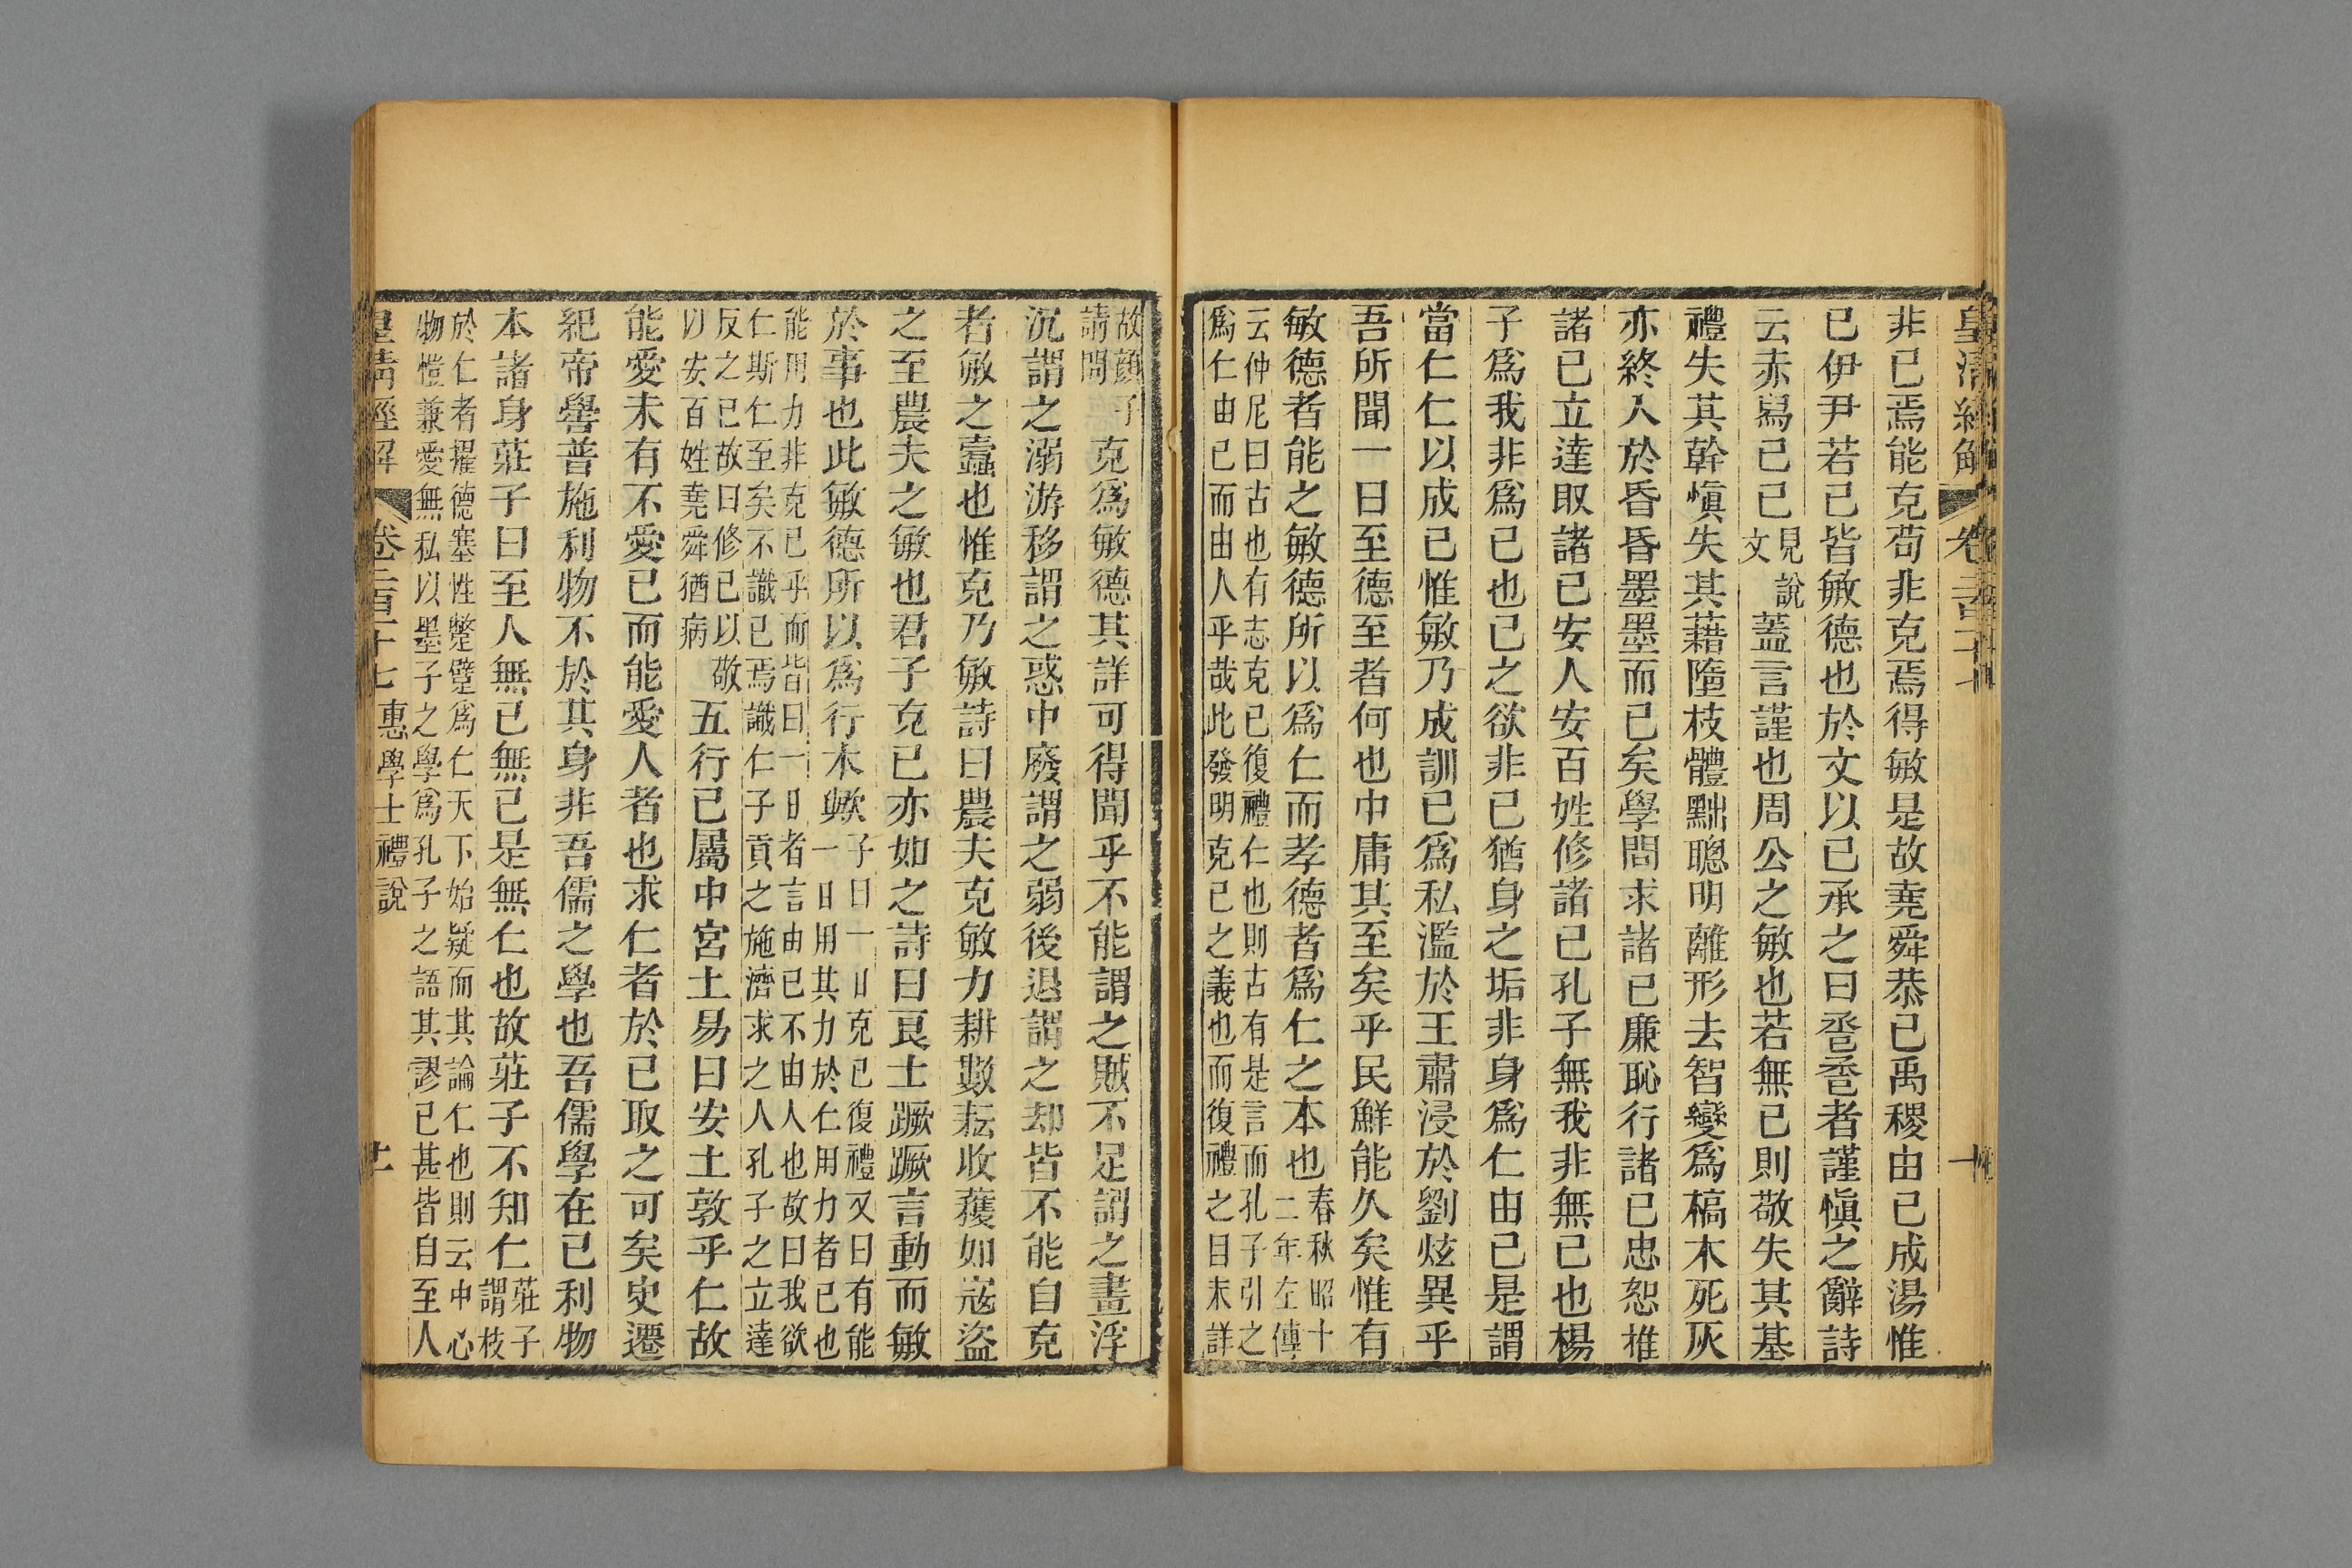 皇清經解
非已焉能克苟非克焉得敏是故堯舜恭已禹稷由已成湯惟
已伊尹若已皆敏德也於文以已承之曰卺卺者謹愼之辭詩
云赤舃已已見說文蓋言謹也周公之敏也若無已則敬失其基
禮失其幹愼失其藉墮枝體黜聰明離形去智變爲槁木死灰
亦終入於昏昏墨墨而已矣學問求諸已廉恥行諸已忠恕推
諸已立達取諸已安人安百姓修諸已孔子無我非無已也楊
子爲我非爲已也已之欲非已猶身之垢非身爲仁由已是謂
當仁仁以成已惟敏乃成訓已爲私濫於王肅浸於劉炫異乎
吾所聞一曰至德至者何也中庸其至矣乎民鮮能久矣惟有
敏德者能之敏德所以爲仁而孝德者爲仁之本也春秋昭十二年左傳
云仲尼曰古也有志克已復禮仁也則古有是言而孔子引之
爲仁由已而由人乎哉此發明克已之義也而復禮之目未詳
故顏子請問克爲敏德其詳可得聞乎不能謂之賊不足謂之畫浮
沉謂之溺游移謂之惑中廢謂之弱後退謂之却皆不能自克
者敏之蠹也惟克乃敏詩曰農夫克敏力耕數耘收穫如寇盜
之至農夫之敏也君子克已亦如之詩曰良士蹶蹶言動而敏
於事也此敏德所以爲行木歟子曰一日克已復禮又曰有能一日用其力於仁用力者已也
能用力非克已乎而皆曰一日者言由已不由人也故曰我欲
仁斯仁至矣不識已焉識仁子貢之施濟求之人孔子之立達
反之已故曰修已以敬以安百姓堯舜猶病五行已屬中宮土易曰安土敦乎仁故
能愛未有不愛已而能愛人者也求仁者於已取之可矣史遷
紀帝嚳普施利物不於其身非吾儒之學也吾儒學在已利物
本諸身莊子曰至人無已無已是無仁也故莊子不知仁莊子謂枝
於仁者擢德塞性蹩躠爲仁天下始疑而其論仁也則云中心
物愷兼愛無私以墨子之學爲孔子之語其謬已甚皆自至人
皇清經解 卷二百十七 惠學士禮說 十一